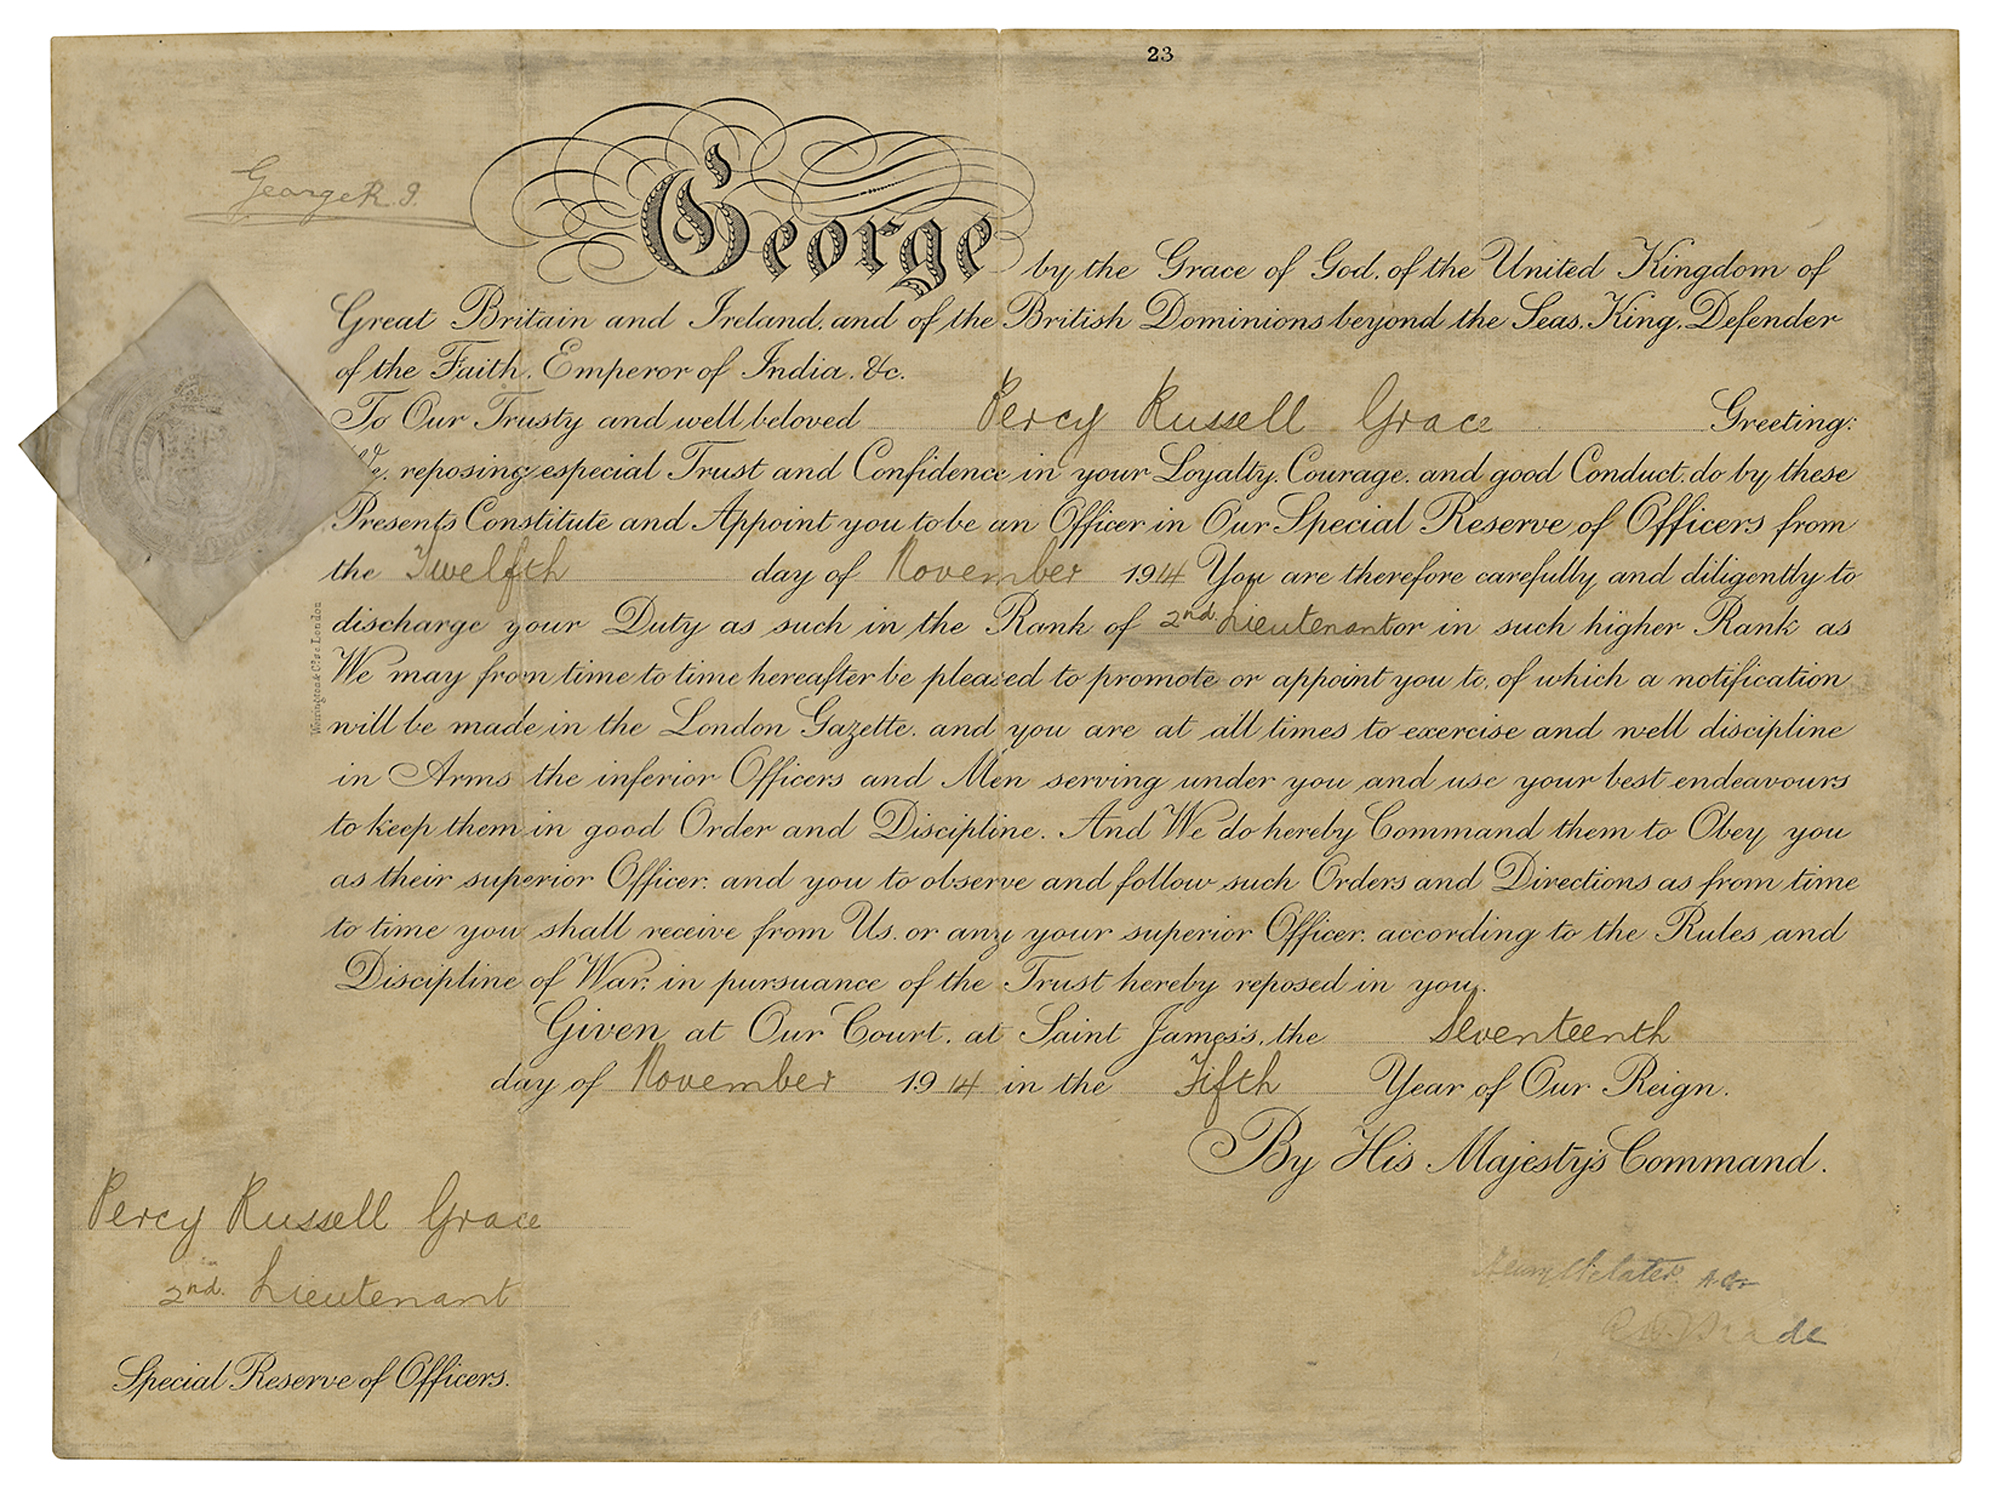 23
George R. I.
George by the Grace of God, of the United Kingdom of
Great Britain and Ireland, and of the British Dominions beyond the Seas, King, Defender
of the Faith, Emperor of India, &c.
To Our Trusty and well beloved Percy Russell Grace Greeting:
We, reposing especial Trust and Confidence in your Loyalty, Courage, and good Conduct, do by these
Presents Constitute and Appoint you to be an Officer in Our Special Reserve of Officers from
the Twelfth day of November 1914 You are therefore carefully and diligently to
discharge your Duty as such in the Rank of 2nd. Lieutenant or in such higher Rank as
We may from time to time hereafter be pleased to promote or appoint you to, of which a notification
will be made in the London Gazette, and you are at all times to exercise and well discipline
in Arms the inferior Officers and Men serving under you and use your best endeavours
to keep them in good Order and Discipline. And We do hereby Command them to Obey you
as their superior Officer, and you to observe and follow such Orders and Directions as from time
to time you shall receive from Us, or any your superior Officer, according to the Rules and
Discipline of War, in pursuance of the Trust hereby reposed in you.
Given at Our Court, at Saint James's, the Seventeenth
day of November 1914 in the Fifth Year of Our Reign.
By His Majesty's Command.
Percy Russell Grace
2nd. Lieutenant
Special Reserve of Officers.
London